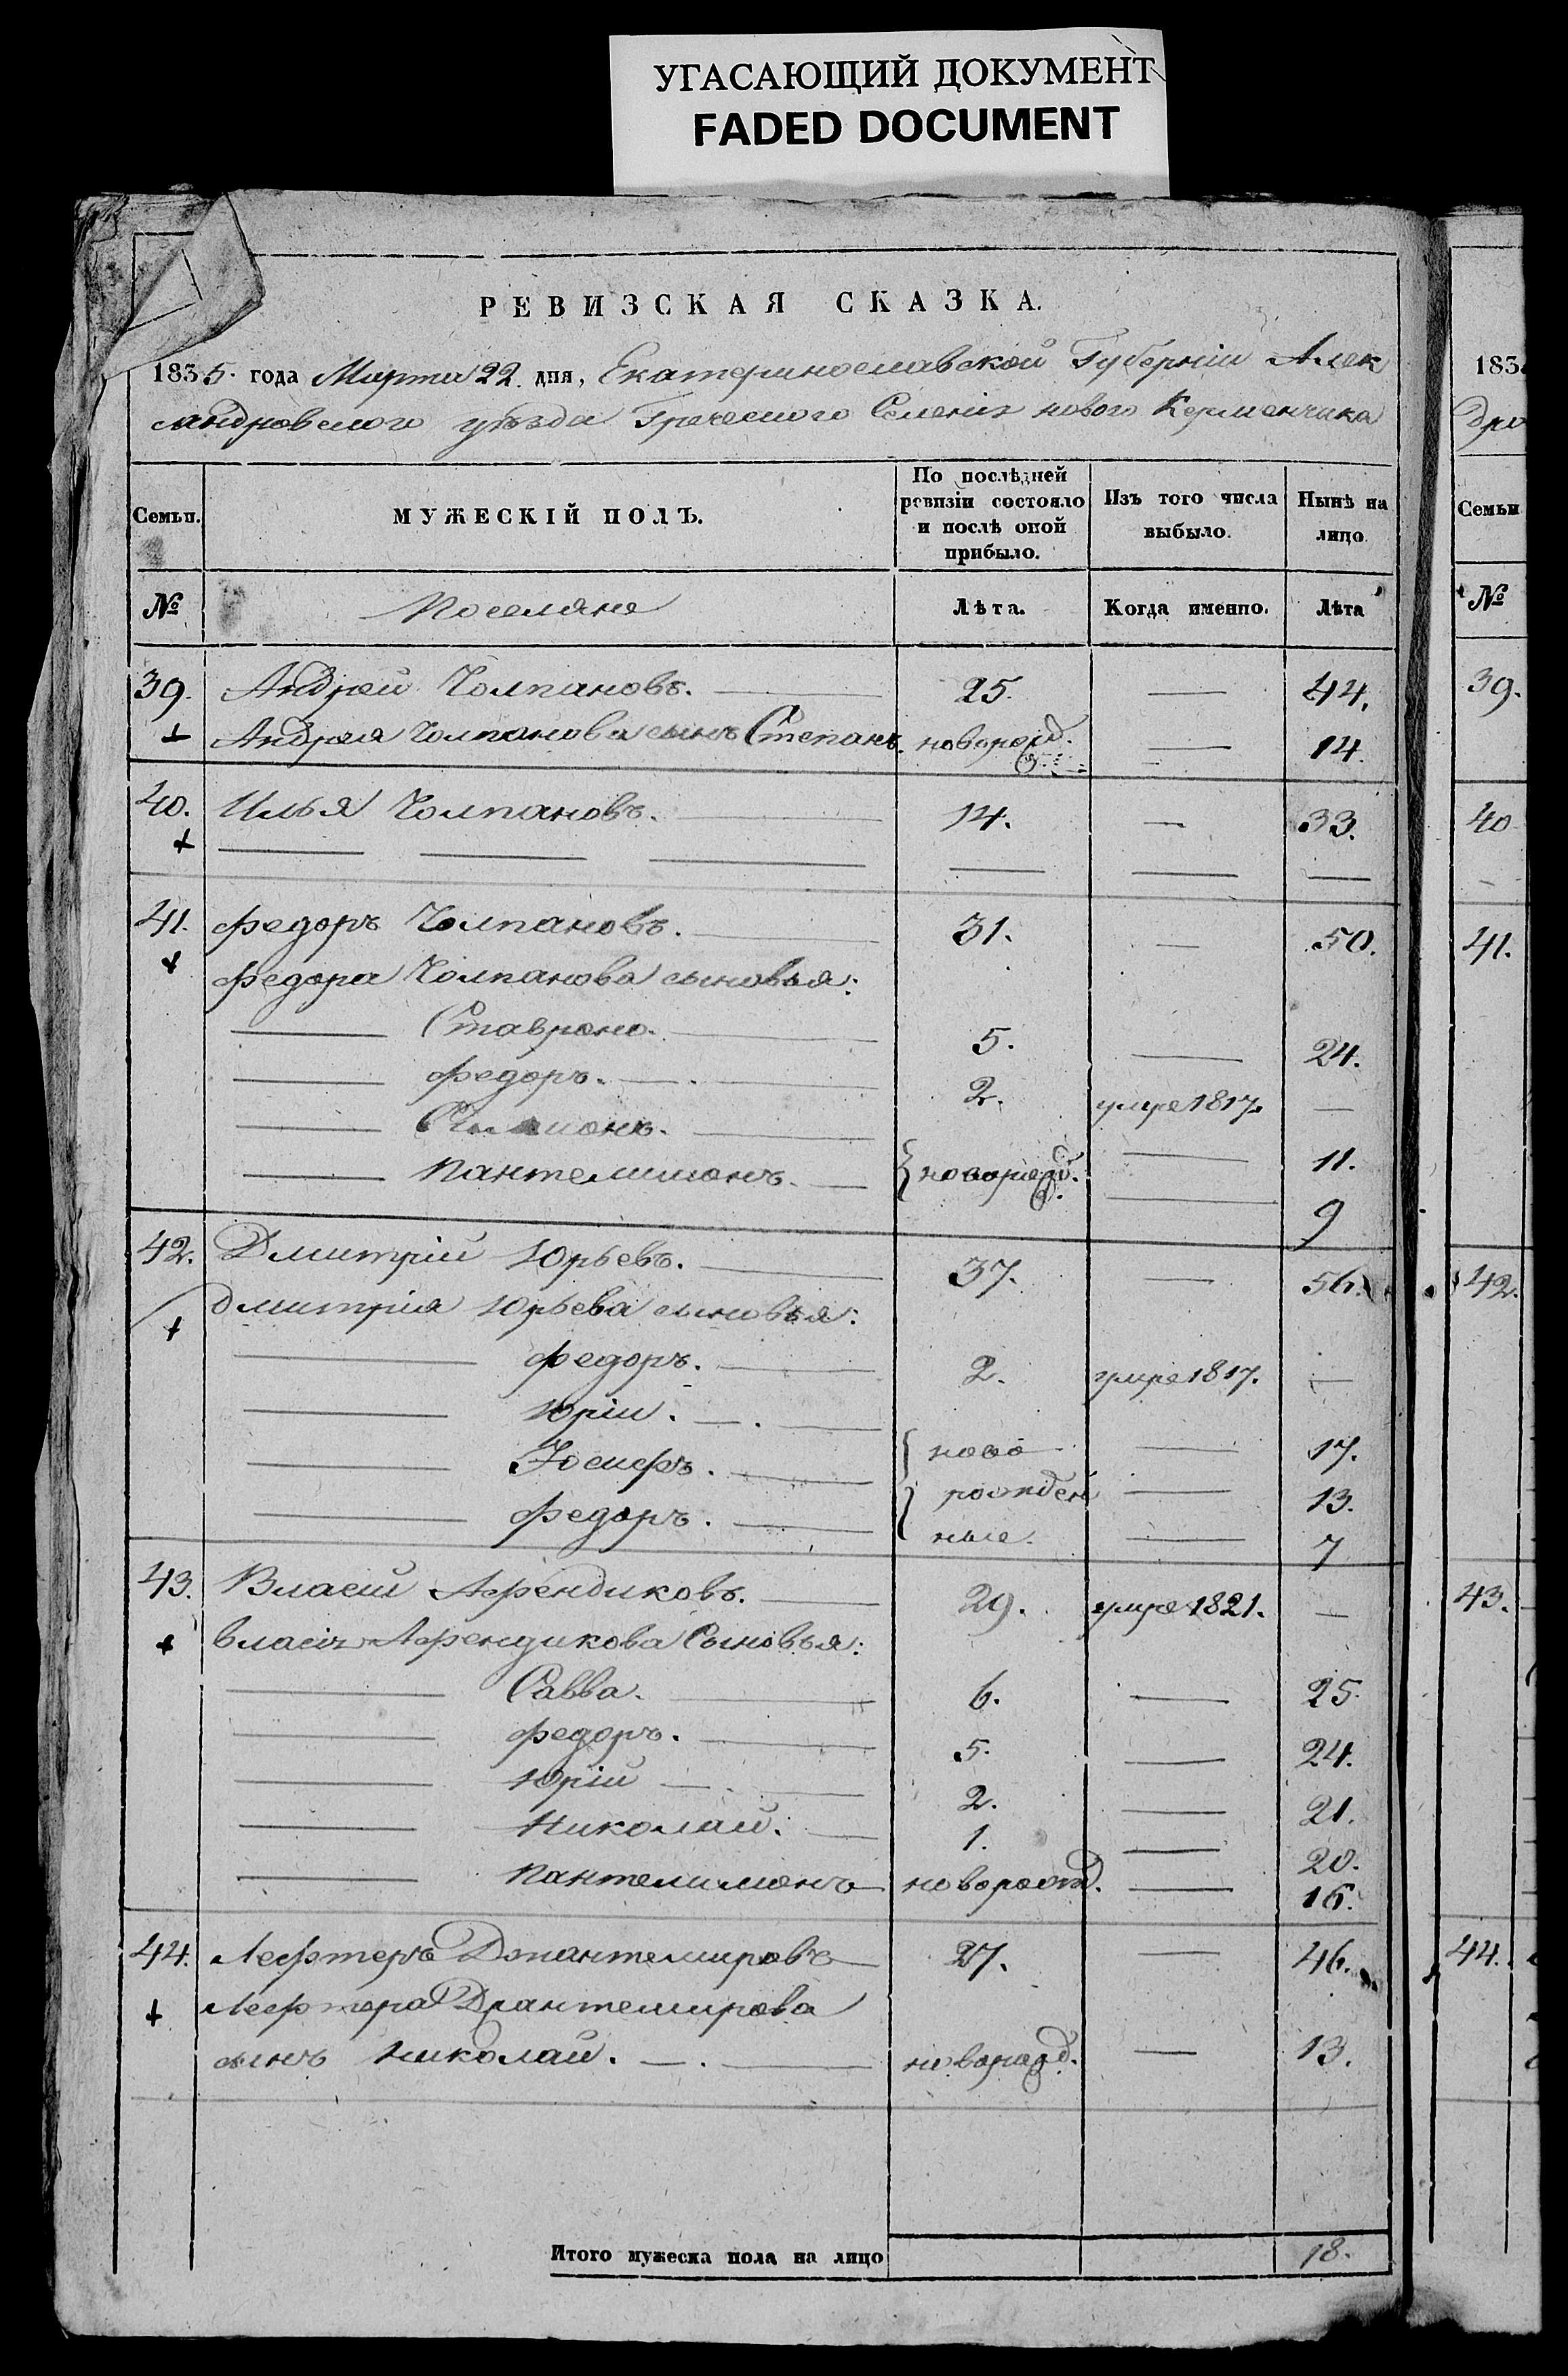 УГАСАЮЩИЙ ДОКУМЕНТ
FADED DOCUMENT
РЕВИЗСКАЯ СКАЗКА.
1835. года Марта 22. дня, Екатеринославской Губерніи Алек
сандровского уѣзда Греческого Селенія нового Керменчика
Семьи. МУЖЕСКІЙ ПОЛЪ. По послѣдней ревизіи состояло и послѣ оной прибыло. Изъ того числа выбыло. Нынѣ на лицо.
№ Поселяне Лѣта. Когда именно. Лѣта
39. Андрей Чолпановъ. 25. — 44.
Андрея Чолпанова сынъ Степанъ. новорожд. — 14.
40. Илья Чолпановъ. 14. — 33.
41. Федоръ Чолпановъ. 31. — 50.
Федора Чолпанова сыновья:
Ставрено. 5. — 24.
Федоръ. 2. умре 1817. —
— 11.
Пантелимонъ. новорожд. — 9
42. Дмитрій Юрьевъ. 37. — 56.
Дмитрія Юрьева сыновья:
Федоръ. 2. умре 1817. —
Юрій. ново — 17.
Іосифъ. рожден — 13.
Федоръ. ные. — 7
43. Власій Афендиковъ. 29. умре 1821. —
Власія Афендикова Сыновья:
Савва. 6. — 25.
Федоръ. 5. — 24.
Юрій 2. — 21.
Николай. 1. — 20.
Пантелимонъ новорожд. — 16.
44. Лефтеръ Джантемировъ 27. — 46.
Лефтера Джантемирова
сынъ Николай. новорожд. — 13.
Итого мужеска пола на лицо 18.
183
дро
Семьи
№
39.
40
41.
42.
43.
44.